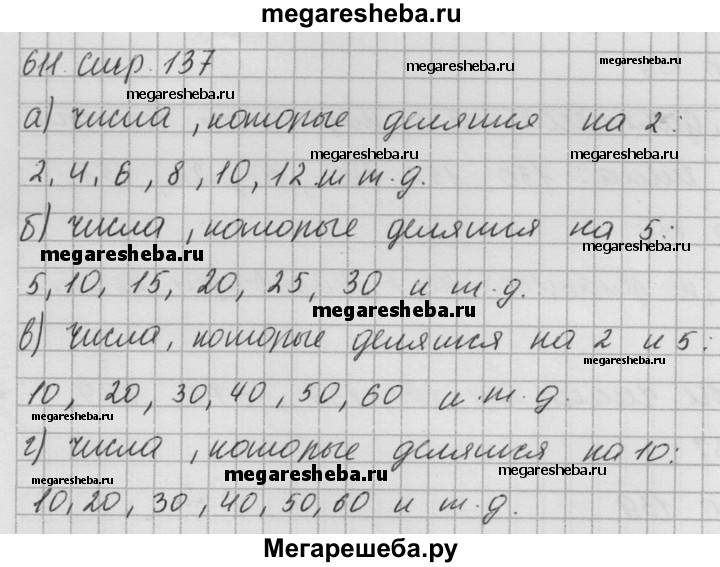 megaresheba.ru
611. стр. 137
megaresheba.ru
megaresheba.ru
а) числа, которые делятся на 2:
megaresheba.ru
2, 4, 6, 8, 10, 12 и т.д.
б) числа, которые делятся на 5:
megaresheba.ru
megaresheba.ru
5, 10, 15, 20, 25, 30 и т.д.
megaresheba.ru
в) числа, которые делятся на 2 и 5:
megaresheba.ru
10, 20, 30, 40, 50, 60 и т.д.
megaresheba.ru
г) числа, которые делятся на 10:
megaresheba.ru
megaresheba.ru
megaresheba.ru
10, 20, 30, 40, 50, 60 и т.д.
Мегарешеба.ру